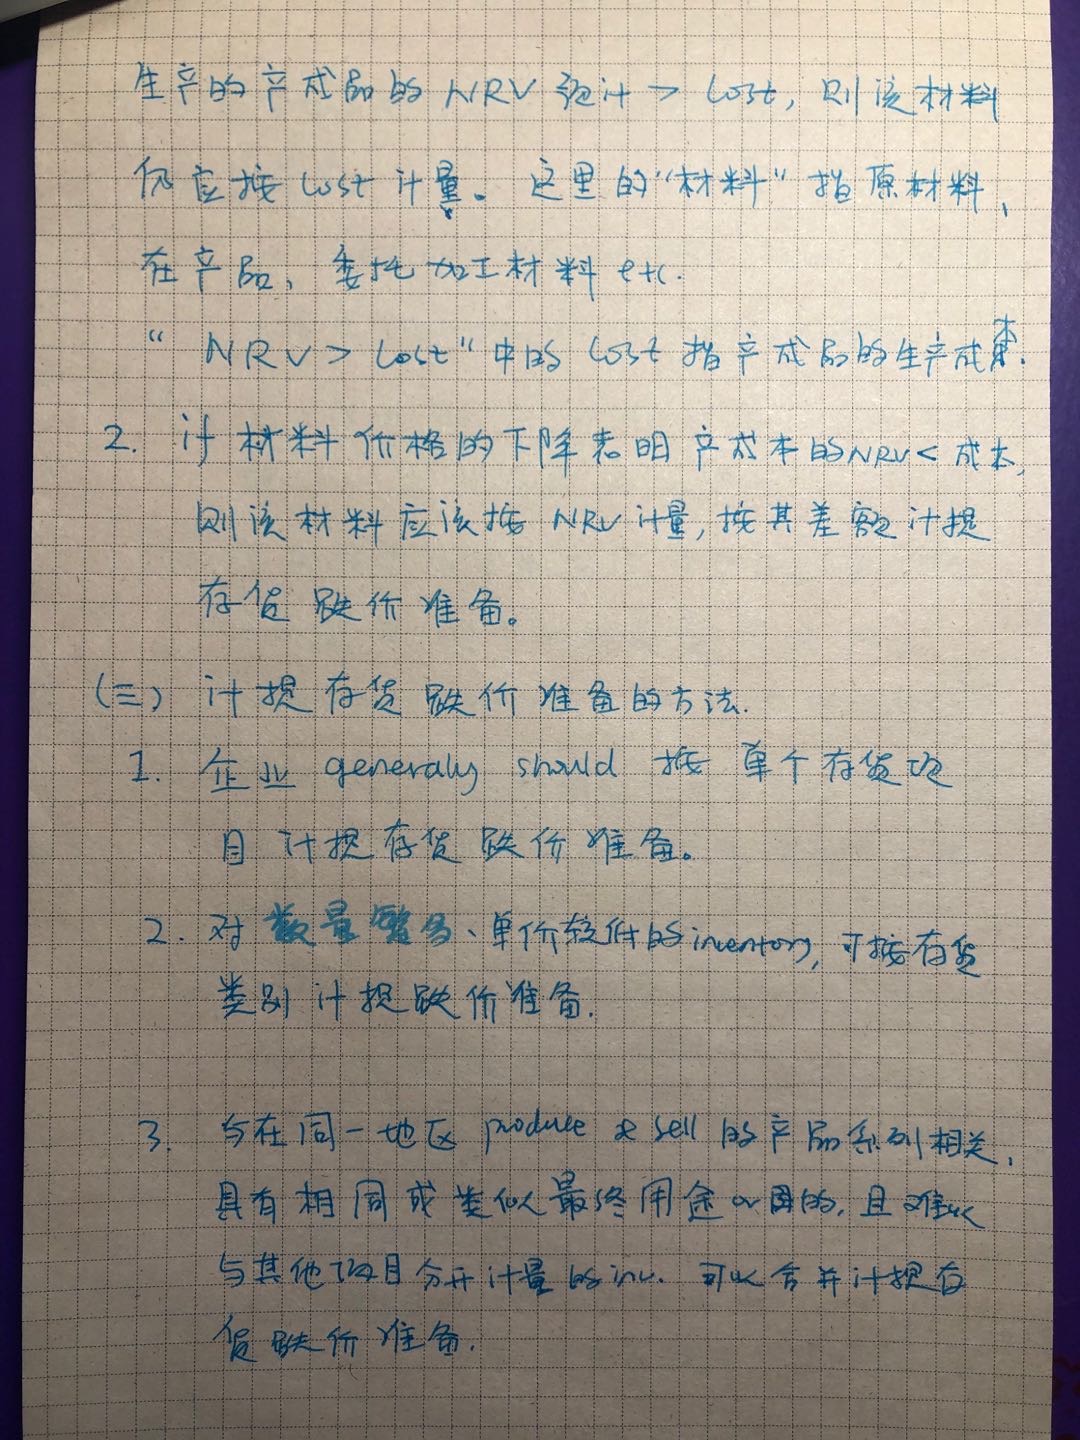 生产的产成品的NRV预计>Cost，则该材料
仍应按Cost计量。这里的“材料”指原材料、
在产品、委托加工材料etc.
“NRV>Cost”中的Cost指产成品的生产成本.
2. 计材料价格的下降表明产成本的NRV<成本,
则该材料应该按NRV计量,按其差额计提
存货跌价准备。
(三) 计提存货跌价准备的方法.
1. 企业generally should 按单个存货项
目计提存货跌价准备。
2. 对数量繁多、单价较低的inventory,可按存货
类别计提跌价准备.
3. 与在同一地区produce & sell的产品系列相关,
具有相同或类似最终用途or目的,且难以
与其他项目分开计量的inv. 可以合并计提存
货跌价准备.